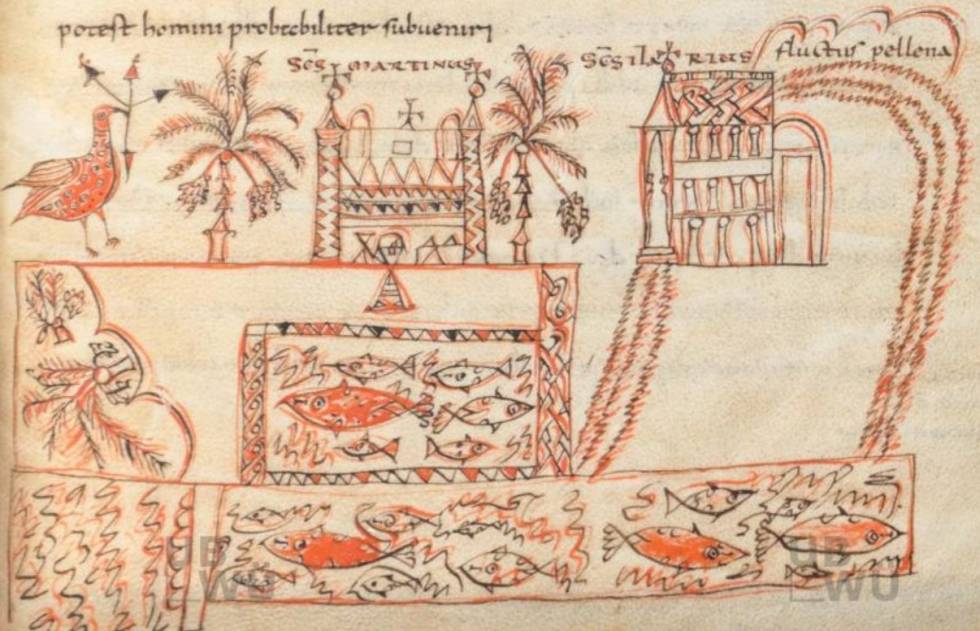 potest homini probabiliter subveniri
SC̄S MARTINUS
SC̄S ILA RIUS
fluctus pellena
UB
WU
UB
WU